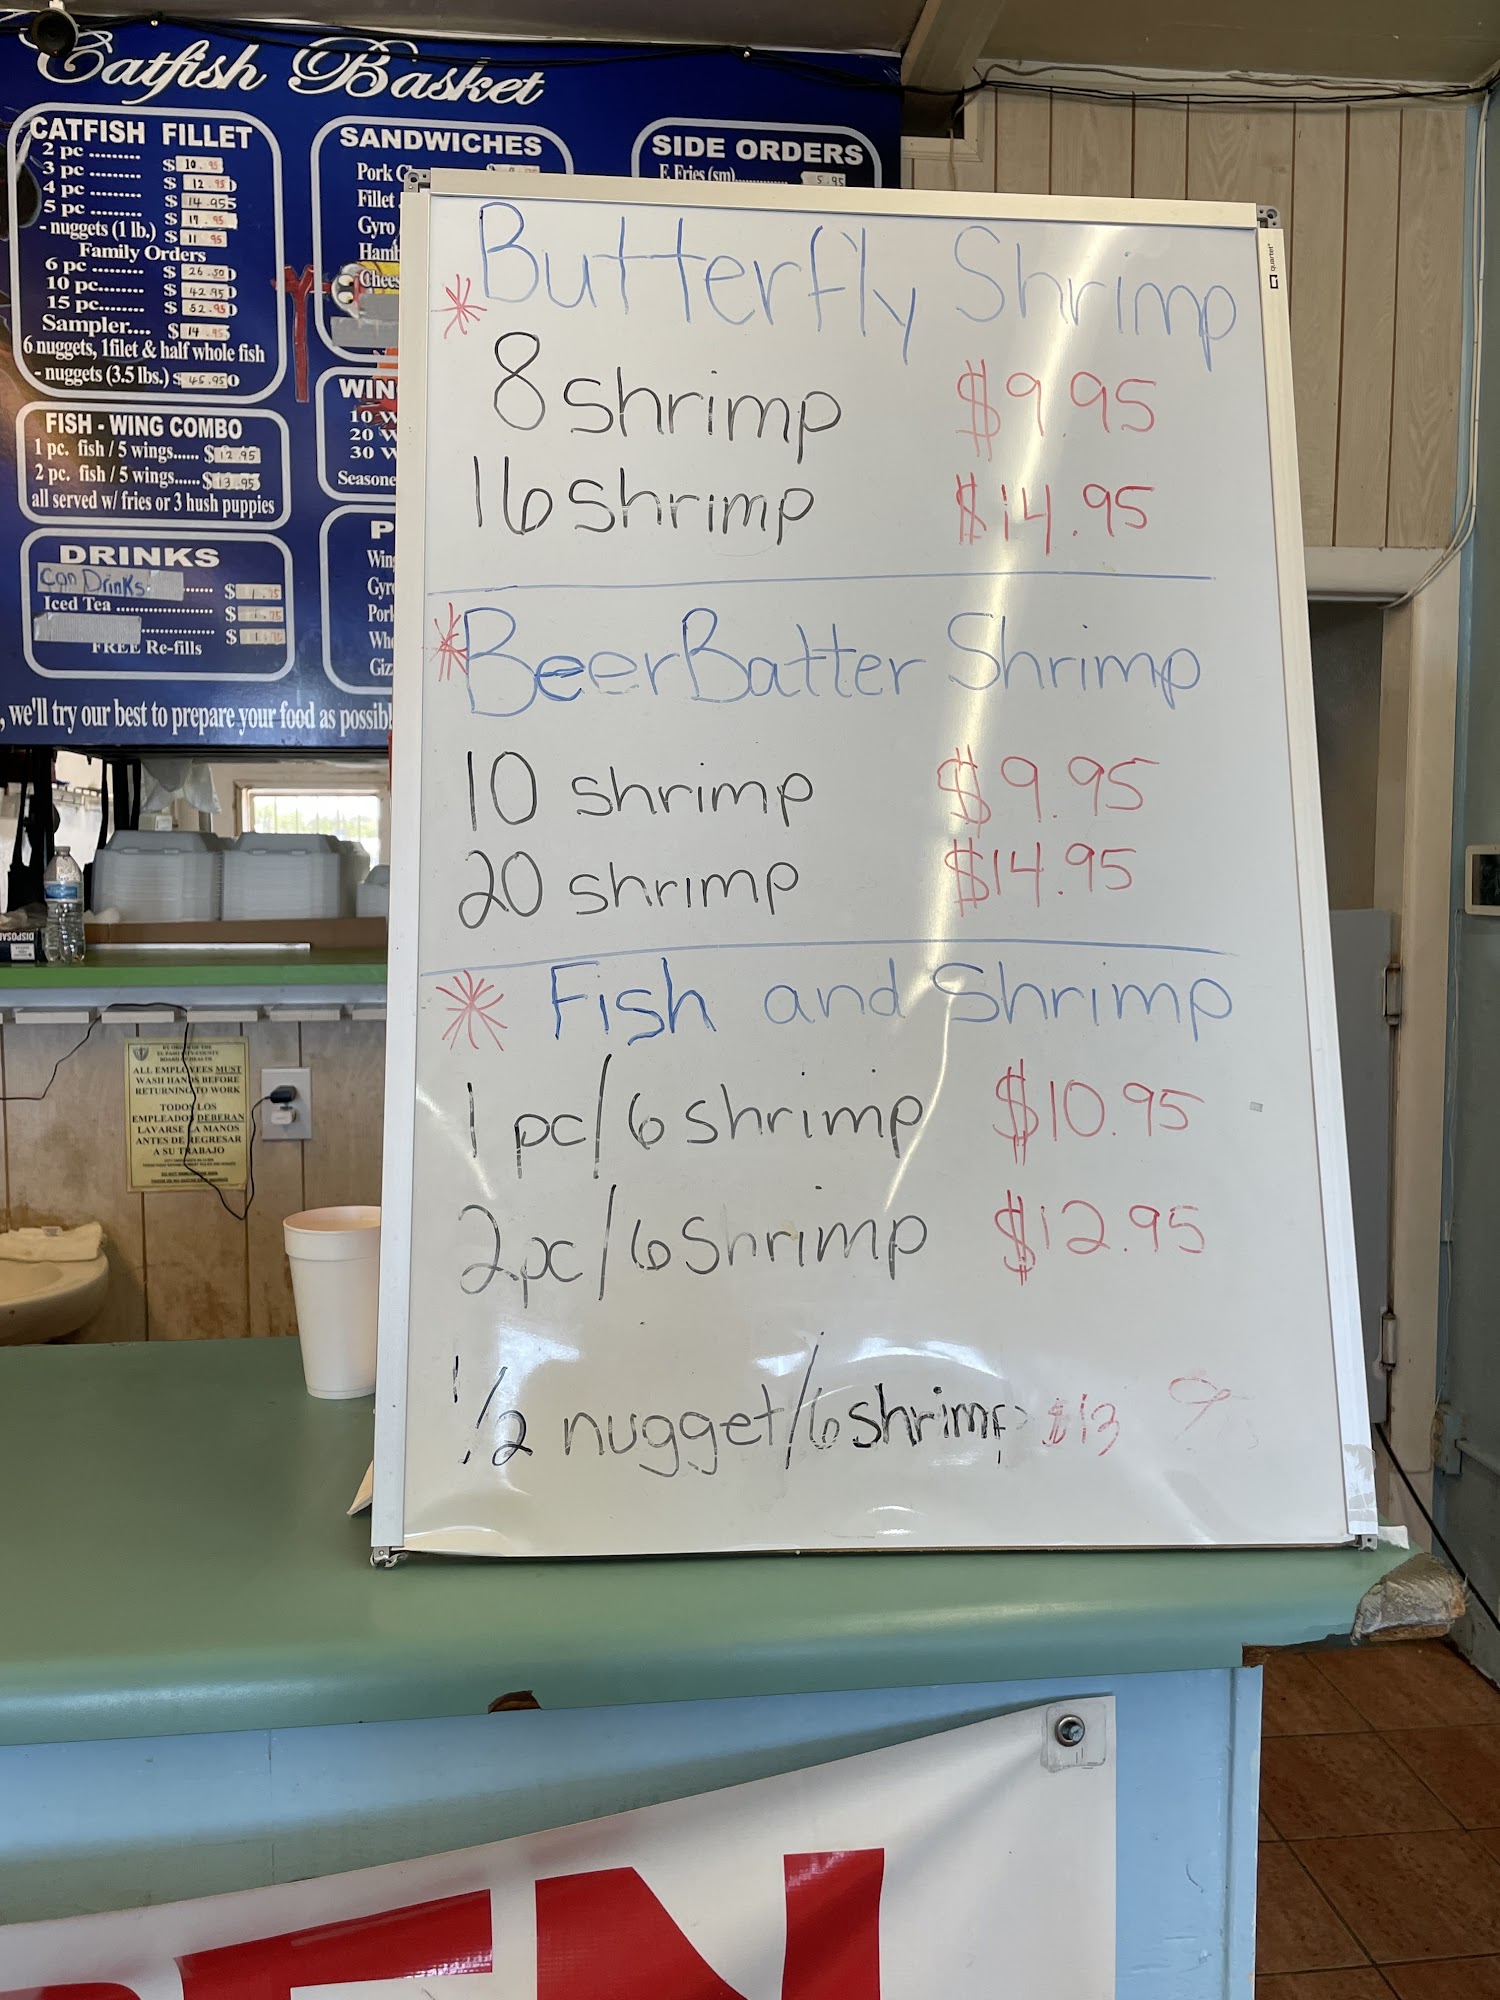 Catfish Basket
CATFISH FILLET
2 pc ......... $ 10.95
3 pc ......... $ 12.95
4 pc ......... $ 14.95
5 pc ......... $ 17.95
- nuggets (1 lb.) $ 11.95
Family Orders
6 pc ......... $ 26.50
10 pc........ $ 42.95
15 pc........ $ 52.95
Sampler.... $ 14.95
6 nuggets, 1filet & half whole fish
- nuggets (3.5 lbs.) $ 45.95
FISH - WING COMBO
1 pc. fish / 5 wings...... $12.95
2 pc. fish / 5 wings...... $13.95
all served w/ fries or 3 hush puppies
DRINKS
Can Drinks ...... $ 1.75
Iced Tea .................. $ 1.75
................ $ 1.75
FREE Re-fills
SANDWICHES
Pork
Fillet
Gyro
SIDE ORDERS
F. Fries (sm).............. 5.95
WIN
10 W
20 W
30 W
Seasone
P
Win
Gyr
Pork
Who
Giz
, we'll try our best to prepare your food as possibl
* Butterfly Shrimp
8 shrimp $9.95
16 shrimp $14.95
* Beer Batter Shrimp
10 shrimp $9.95
20 shrimp $14.95
* Fish and Shrimp
1 pc/6 shrimp $10.95
2pc/6 shrimp $12.95
1/2 nugget/6 shrimp $13 9
quartet
DISPOSA
EL PASO CITY-COUNTY
BOARD OF HEALTH
ALL EMPLOYEES MUST
WASH HANDS BEFORE
RETURNING TO WORK
TODOS LOS
EMPLEADOS DEBERAN
LAVARSE LA MANOS
ANTES DE REGRESAR
A SU TRABAJO
EN